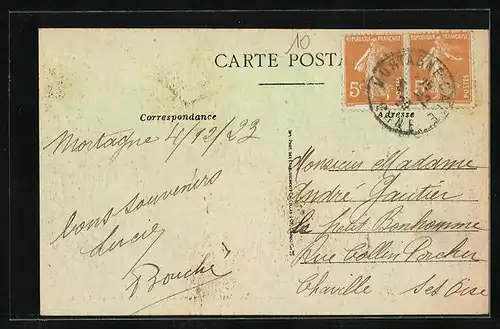 10
CARTE POSTA
REPUBLIQUE FRANÇAISE
REPUBLIQUE FRANÇAISE
5c
5c
POSTES
MORTAGNE
ORNE
Correspondance
Adresse
Mortagne 4/12/23
bons souvenirs
Lucie
Bouché
Monsieur Madame
André Gautier
le petit Bonhomme
Rue Collin
Chaville